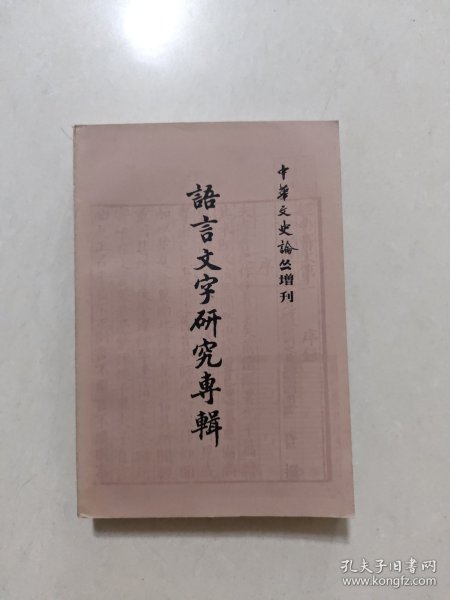 中華文史論丛增刊
語言文字研究專輯
孔夫子旧书网
www.kongfz.com